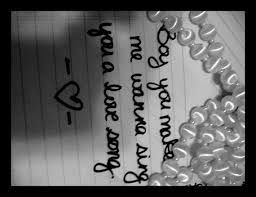 Boy you make
me wanna sing
you a love song
- ♡ -